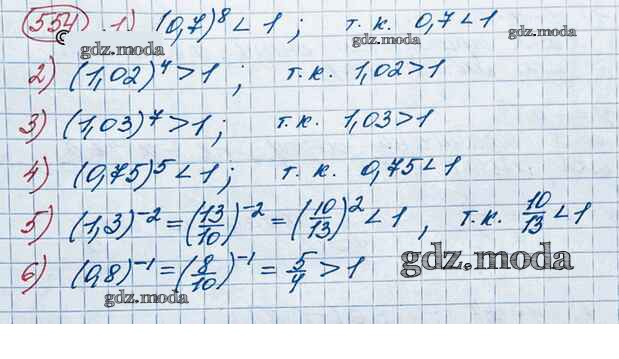 554 1) (0,7)^8 < 1 ; т.к. 0,7 < 1
gdz.moda gdz.moda
2) (1,02)^4 > 1 ; т.к. 1,02 > 1
gdz.moda
3) (1,03)^7 > 1 ; т.к. 1,03 > 1
gdz.moda
4) (0,75)^5 < 1 ; т.к. 0,75 < 1
gdz.moda
5) (1,3)^-2 = (13/10)^-2 = (10/13)^2 < 1 , т.к. 10/13 < 1
6) (0,8)^-1 = (8/10)^-1 = 5/4 > 1
gdz.moda
gdz.moda